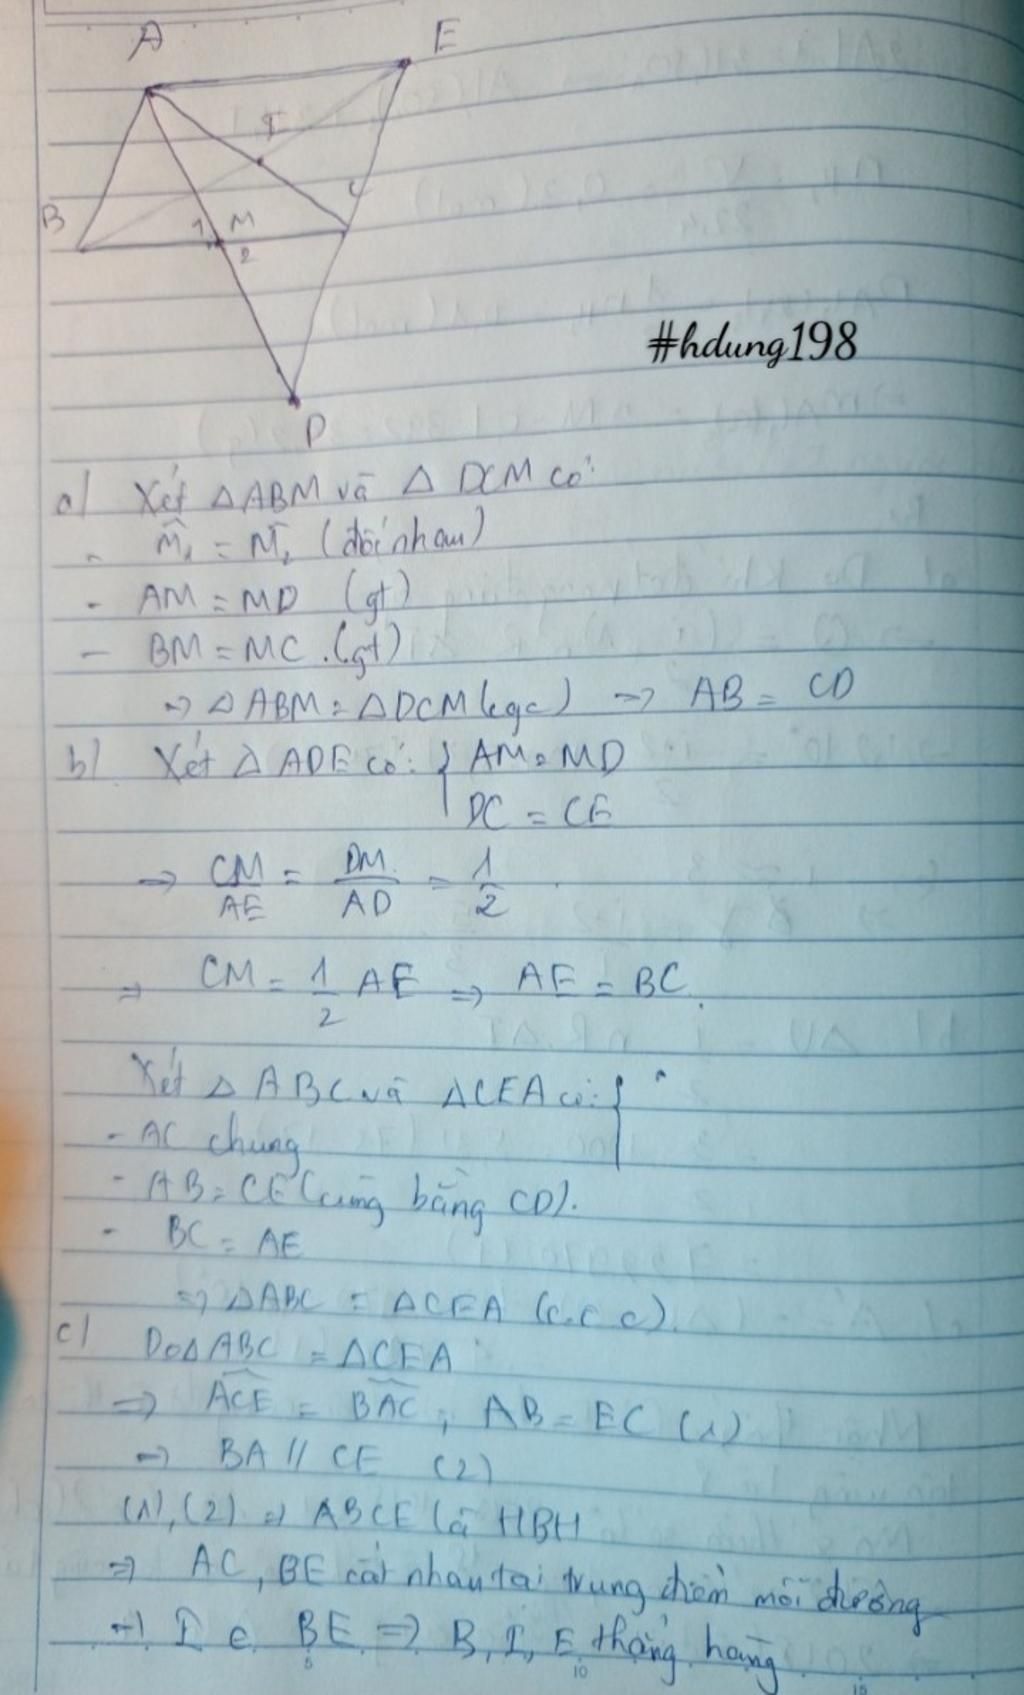 A
E
I
C
B
1
M
2
D
#hdung198
a) Xét △ABM và △DCM có:
- M̂₁ = M̂₂ (đối nhau)
- AM = MD (gt)
- BM = MC (gt)
⇒ △ABM = △DCM (cgc) ⇒ AB = CD
b) Xét △ADE có: { AM = MD
DC = CE
⇒ CM/AE = DM/AD = 1/2
⇒ CM = 1/2 AE ⇒ AE = BC.
Xét △ABC và △CEA có: {
- AC chung
- AB = CE (cùng bằng CD).
- BC = AE
⇒ △ABC = △CEA (c.c.c)
c) Do △ABC = △CEA
⇒ ACE = BAC, AB = EC (1)
⇒ BA // CE (2)
(1), (2) ⇒ ABCE là HBH
⇒ AC, BE cắt nhau tại trung điểm mỗi đường
⇒ I ∈ BE ⇒ B, I, E thẳng hàng
5 10 15